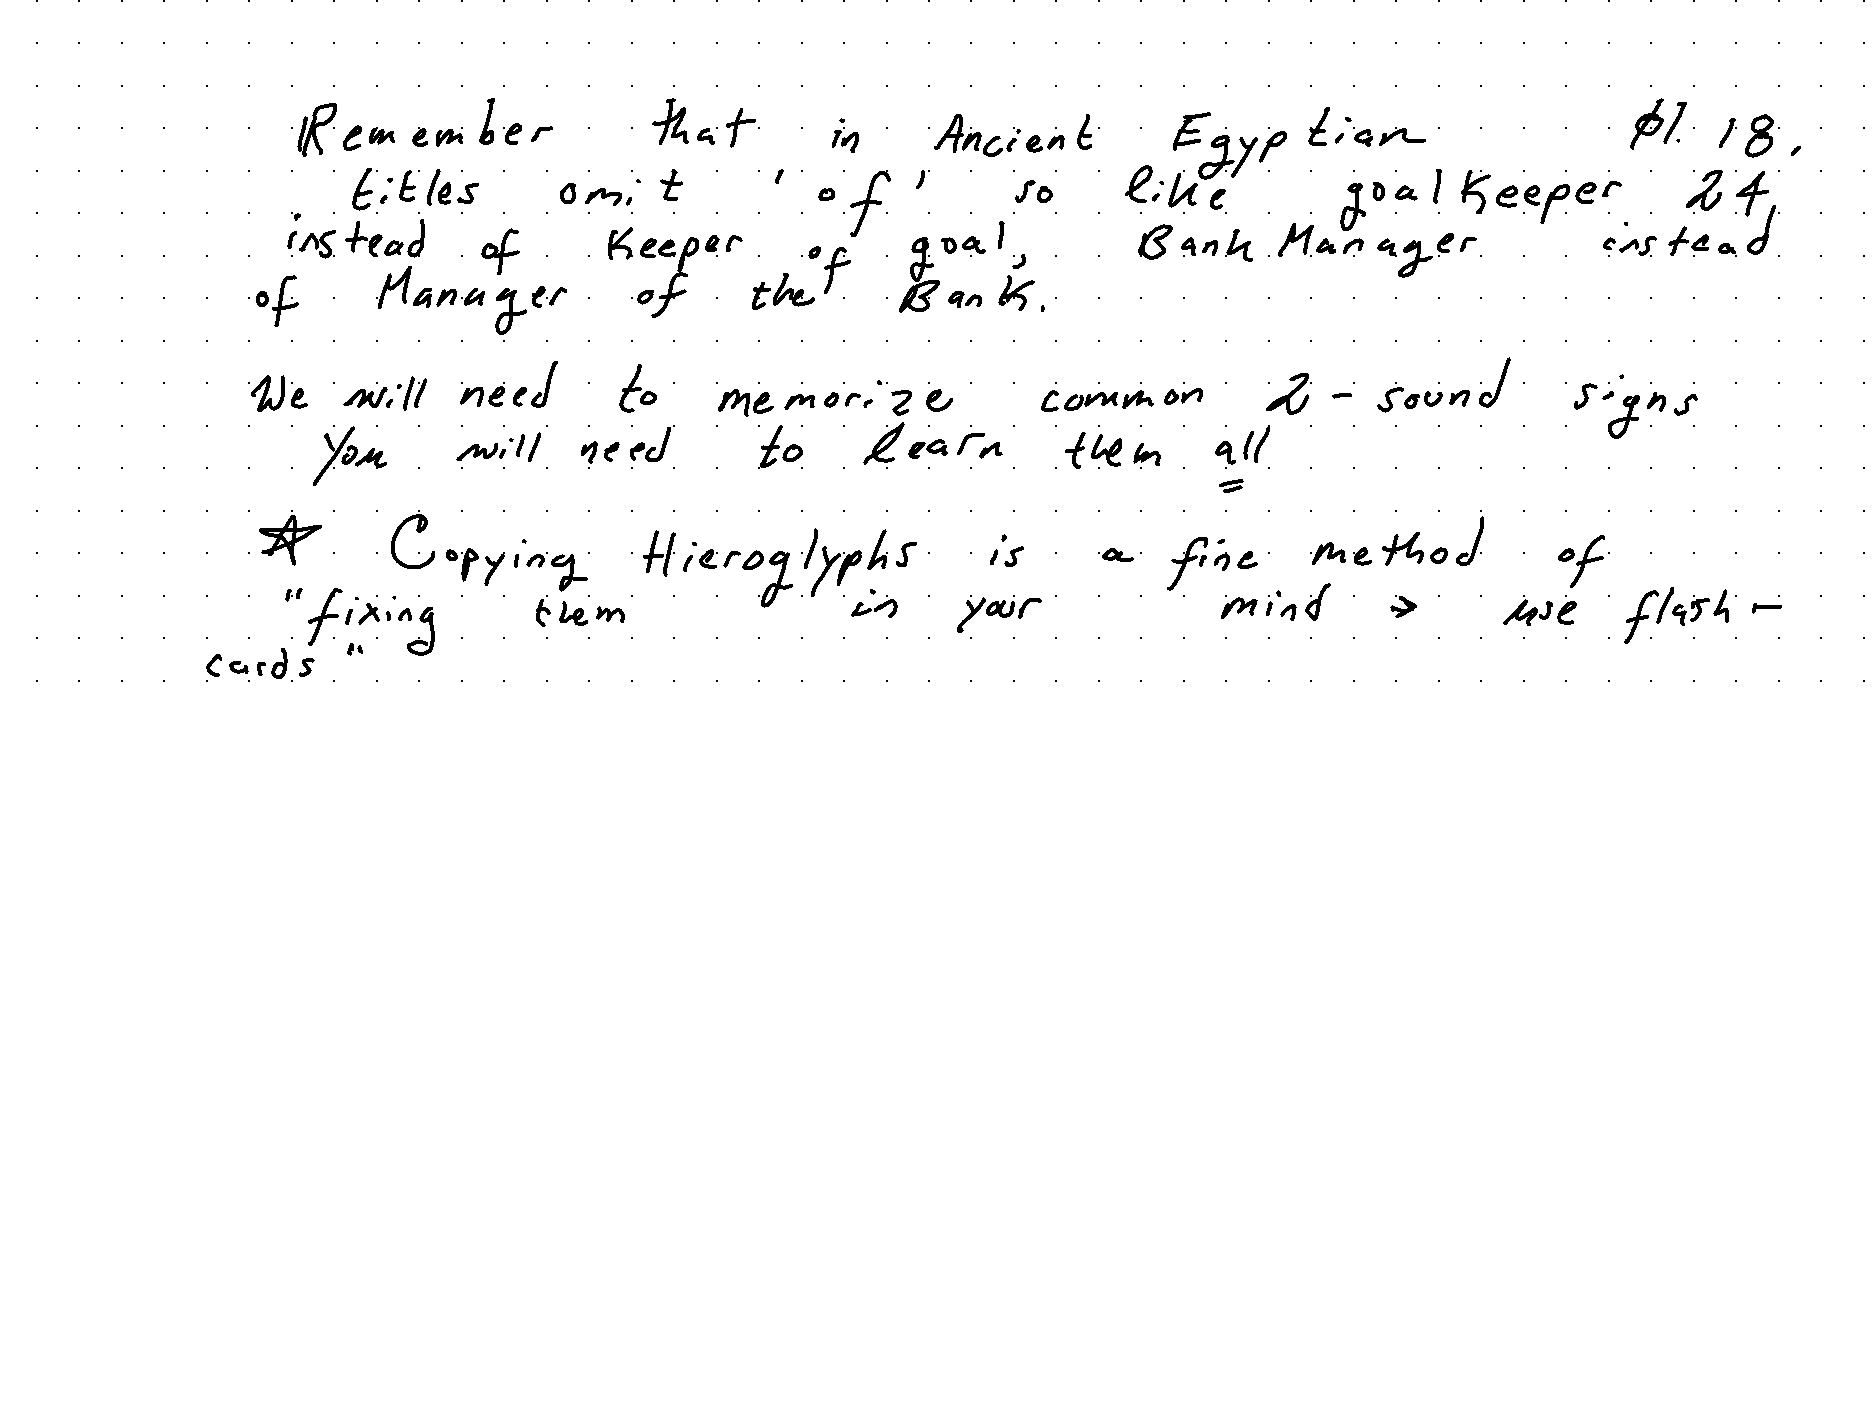 Remember that in Ancient Egyptian 18,
titles omit 'of' so like goalkeeper 24
instead of Keeper of goal, Bank Manager instead
of Manager of the Bank.
We will need to memorize common 2-sound signs
You will need to learn them all
☆ Copying Hieroglyphs is a fine method of
"fixing them in your mind → use flash-
cards"